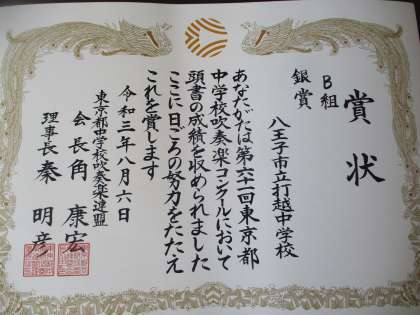 賞状
B組
銀賞
八王子市立打越中学校
あなたがたは第六十一回東京都
中学校吹奏楽コンクールにおいて
頭書の成績を収められました
ここに日ごろの努力をたたえ
これを賞します
令和三年八月六日
東京都中学校吹奏楽連盟
会長角康宏
理事長秦明彦